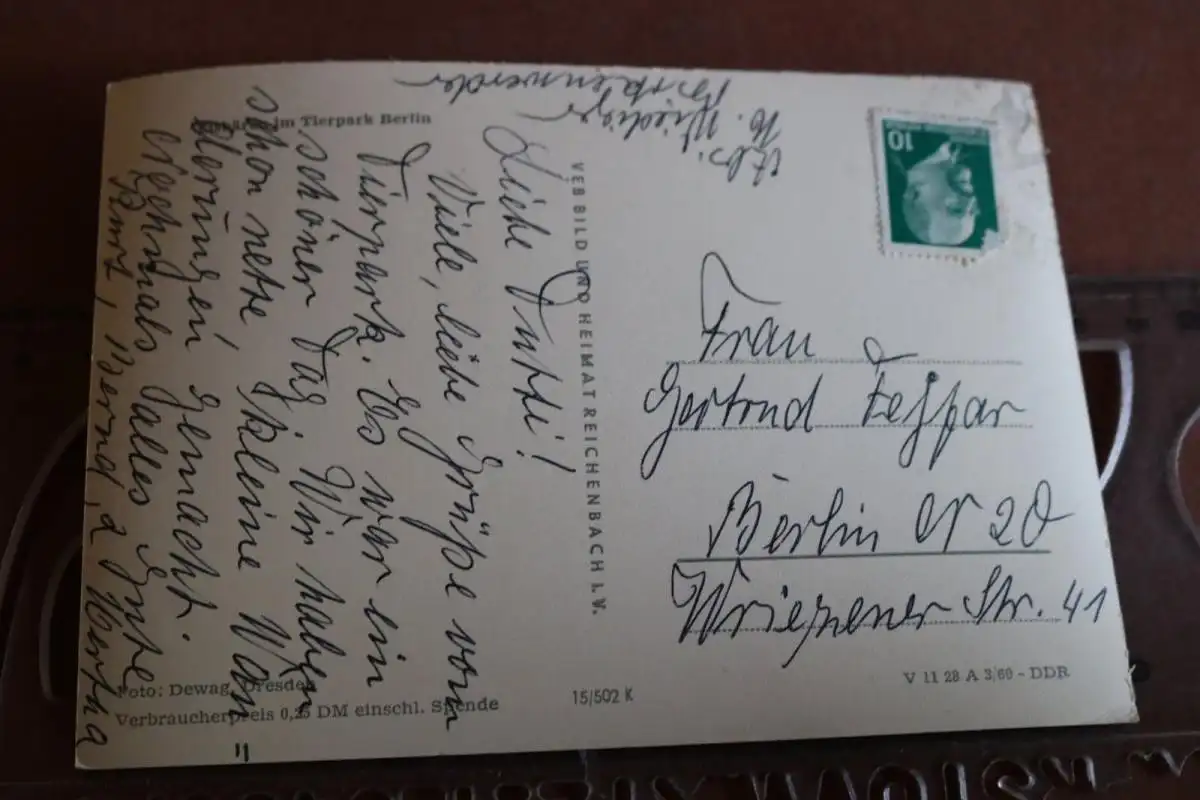 im Tierpark Berlin
Abs.
K. Wiediger
Birkenwerder
Liebe Dutti!
Viele, liebe Grüße vom
Tierpark. Es war ein
schöner Tag. Wir haben
schon nette kleine Wan=
derungen gemacht.
Nochmals alles Gute
Kurt, Bernd, u. Hertha
VEB BILD UND HEIMAT REICHENBACH I. V.
10
Frau
Gertrud
Berlin N 20
Wriezener Str. 41
Foto: Dewag, Dresden
Verbraucherpreis 0,25 DM einschl. Spende
15/502 K
V 11 28 A 3/60 - DDR